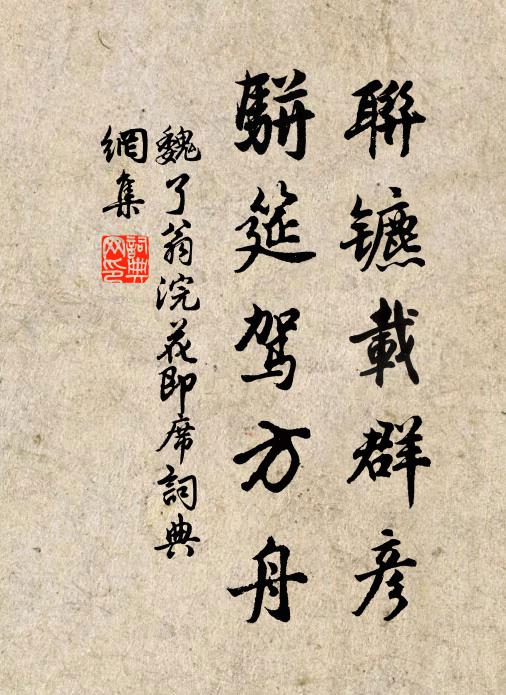 聯鑣載群彥
駢筵駕方舟
魏了翁浣花即席詞典
網集
詞典
网印